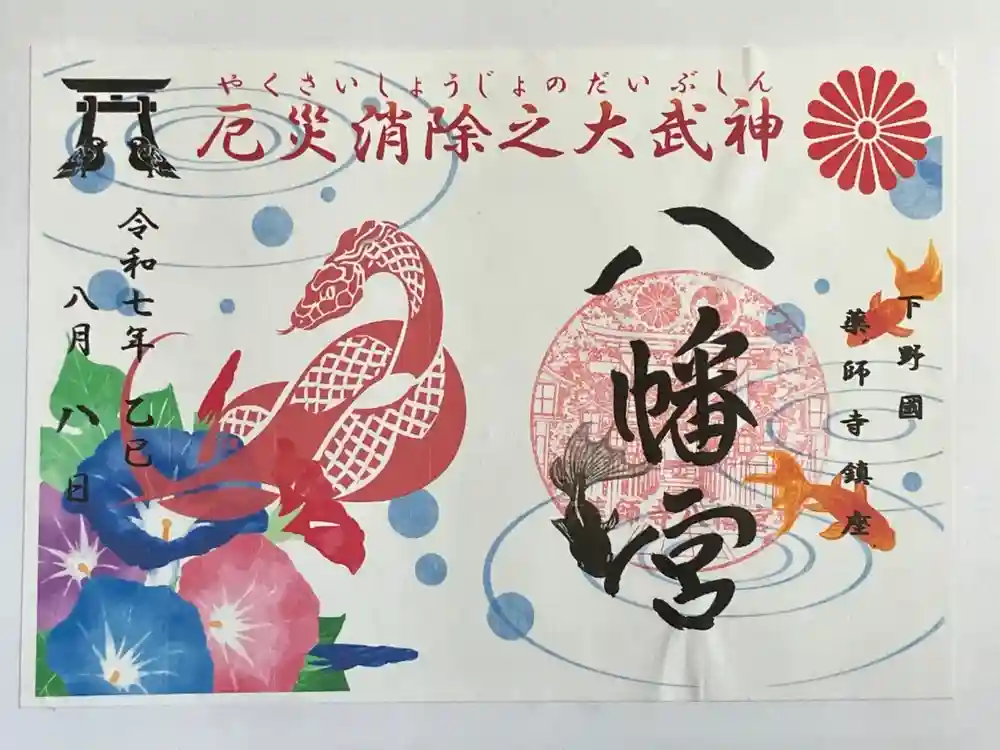 やくさいしょうじょのだいぶしん
厄災消除之大武神
下野國
薬師寺鎮座
八幡宮
令和七年 乙巳
八月 八日